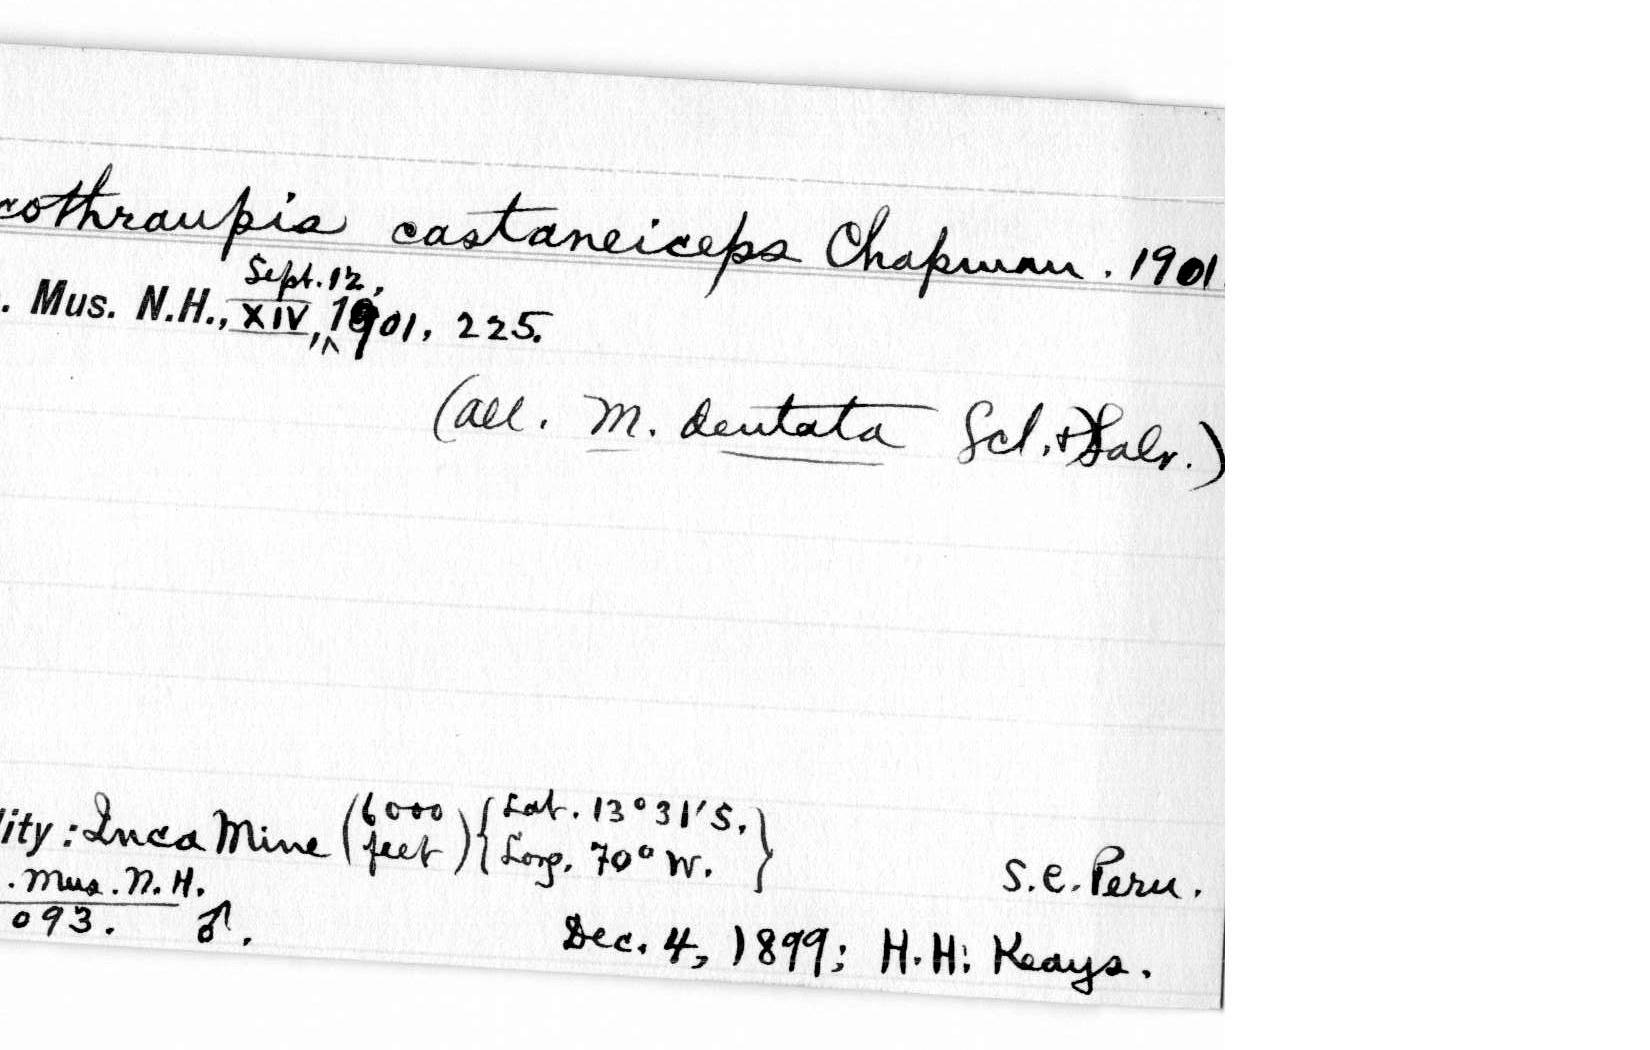 cothraupis castaneiceps Chapman. 1901.
Sept. 12,
. Mus. N.H., XIV, 1901, 225.
(all. M. dentata Scl. & Salv.)
lity: Inca Mine (6000 feet) {Lat. 13° 31' S. Long. 70° W.} S.E. Peru.
. Mus. N. H.
093. ♂. Dec. 4, 1899; H. H. Keays.